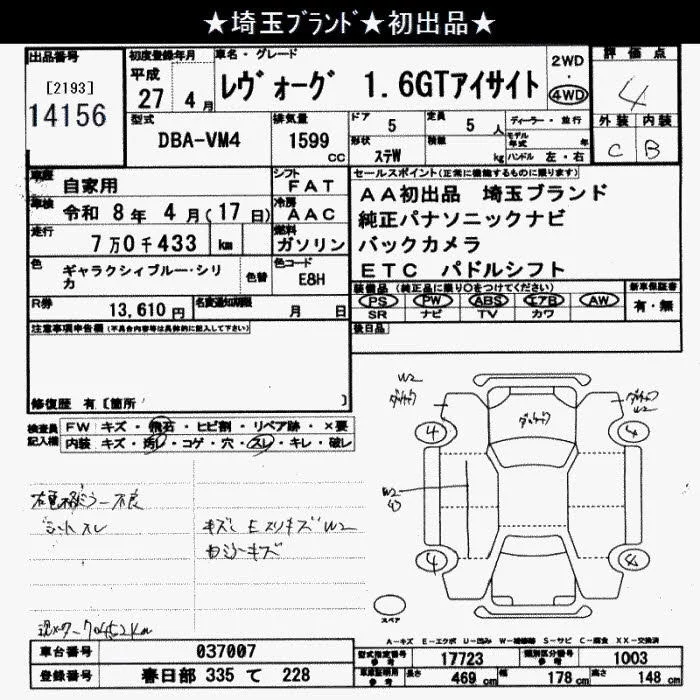 ★埼玉ブランド★初出品★
出品番号
[2193]
14156
初度登録年月
平成
27年 4月
車名・グレード
レヴォーグ 1.6GTアイサイト
2WD
・
4WD
評価点
4
外装 内装
C B
型式
DBA-VM4
排気量
1599
cc
ドア
5
定員
5人
形状
ステW
積載
kg
ディーラー・並行
モデル年式 年
ハンドル 左・右
車歴
自家用
シフト
FAT
車検
令和 8年 4月(17日)
冷房
AAC
走行
7万0千433 km
燃料
ガソリン
色
ギャラクシィブルー・シリカ
色替
色コード
E8H
R券
13,610円
名変通知期限
月 日
セールスポイント(正常に機能するものに限ります)
AA初出品 埼玉ブランド
純正パナソニックナビ
バックカメラ
ETC パドルシフト
装備品(純正品に限り○をつけてください)
PS PW ABS エアB AW
SR ナビ TV カワ
新車保証書
有・無
後日品
注意事項申告欄(不具合内容等は具体的に記入して下さい)
修復歴 有〔箇所 〕
検査員記入欄
FW キズ・飛石・ヒビ割・リペア跡・×要
内装 キズ・汚レ・コゲ・穴・スレ・キレ・破レ
シートスレ
W2
W2
W2
4
4
4
スペア
A-キズ E-エクボ U-凹み W-補修跡 S-サビ C-腐食 XX-交換済
車台番号
037007
登録番号
春日部 335 て 228
型式指定番号
参考
17723
類別区分番号
参考
1003
車庫証明用
参考
長さ
469 cm
幅
178 cm
高さ
148 cm